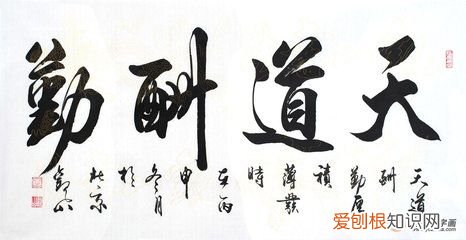 天道酬勤
天道
酬
勤厚
積
薄發
時
在丙
申
冬月
於
北京
爱刨根知识网